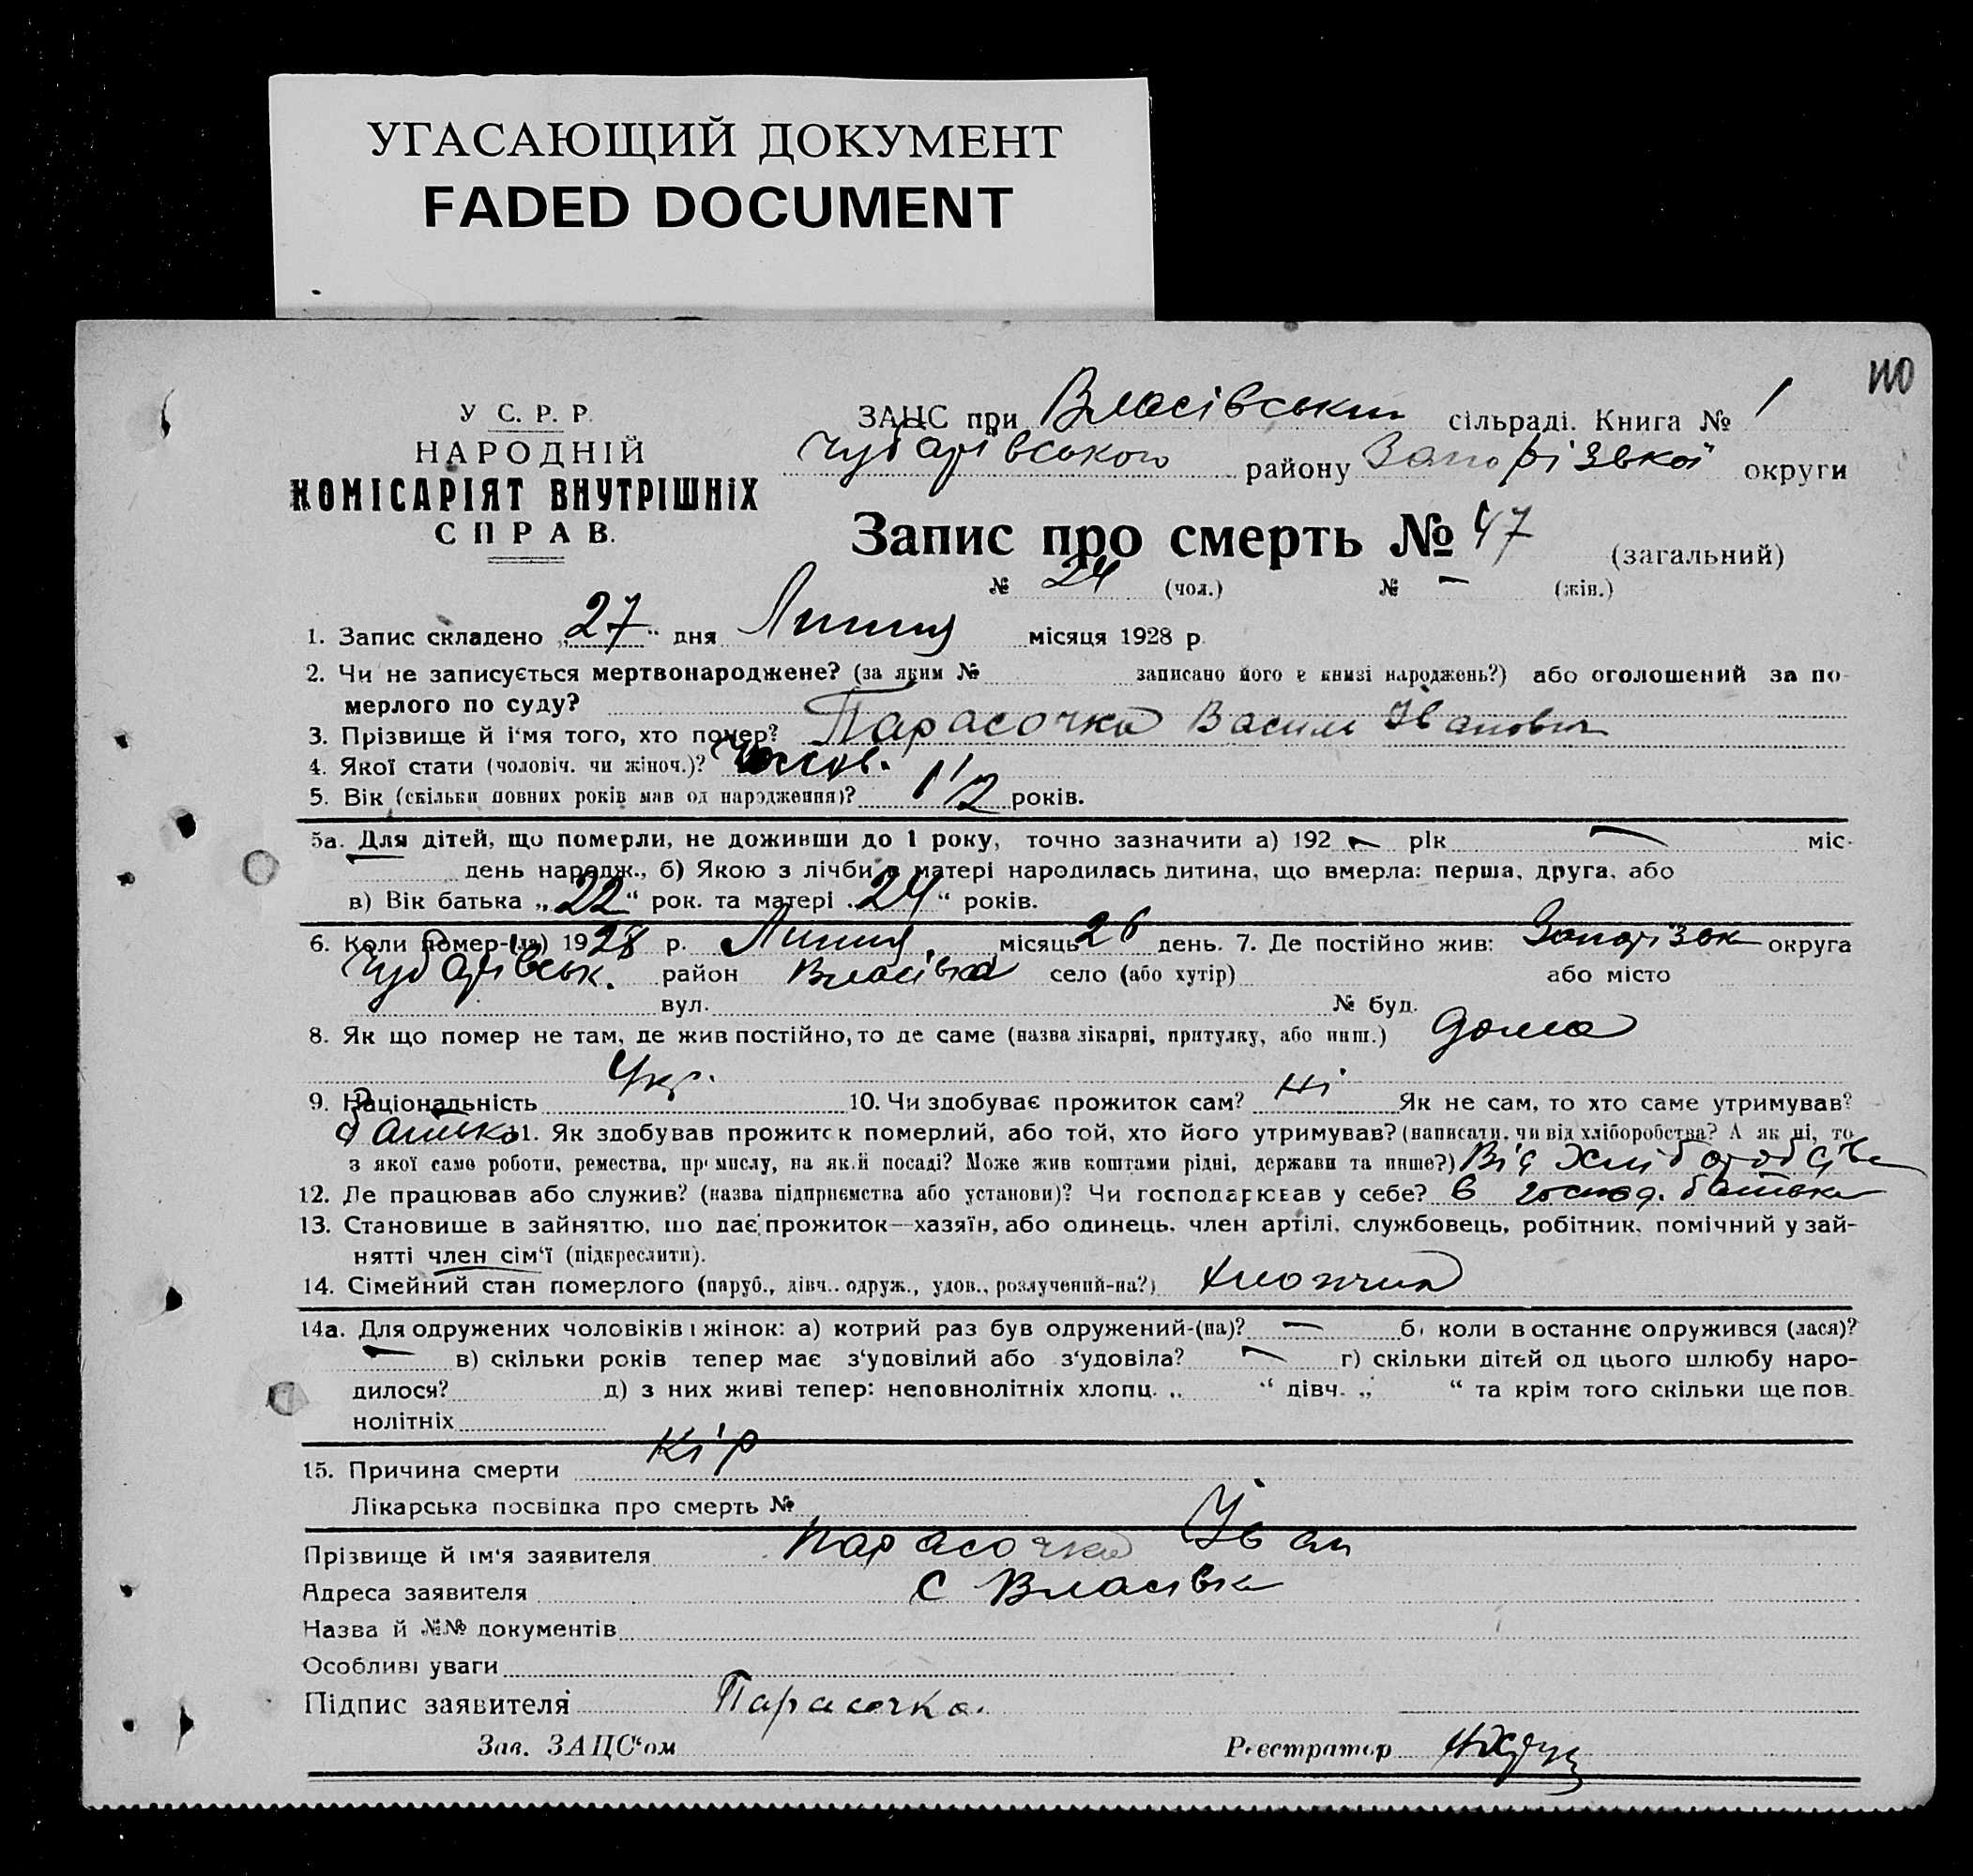 УГАСАЮЩИЙ ДОКУМЕНТ
FADED DOCUMENT
110
У С. Р. Р.
НАРОДНІЙ
КОМІСАРІЯТ ВНУТРІШНІХ
СПРАВ.
ЗАЦС при Власівській сільраді. Книга № 1
Чубарівського району Запорізької округи
Запис про смерть № 47 (загальний)
№ 24 (чол.) № — (жін.)
1. Запис складено „27" дня Липня місяця 1928 р
2. Чи не записується мертвонароджене? (за яким № записано його в книзі народжень?) або оголошений за по-
мерлого по суду?
3. Прізвище й і'мя того, хто помер? Парасочка Василь Іванович
4. Якої стати (чоловіч. чи жіноч.)? Чолов.
5. Вік (скільки повних років мав од народження)? 1 1/2 років.
5а. Для дітей, що померли, не доживши до 1 року, точно зазначити а) 192 — рік — міс.
день народж., б) Якою з лічби в матері народилась дитина, що вмерла: перша, друга, або
в) Вік батька „22" рок. та матері „24" років.
6. Коли помер-(ла) 1928 р. Липня місяць 26 день. 7. Де постійно жив: Запорізьк округа
Чубарівськ. район Власівка село (або хутір) або місто
вул. № буд.
8. Як що помер не там, де жив постійно, то де саме (назва лікарні, притулку, або инш.) дома
9. Національність Укр. 10. Чи здобуває прожиток сам? Ні Як не сам, то хто саме утримував?
батько 11. Як здобував прожиток померлий, або той, хто його утримував? (написати, чи від хліборобства? А як ні, то
з якої саме роботи, ремества, промислу, на якій посаді? Може жив коштами рідні, держави та инше?) Від хліборобства
12. Де працював або служив? (назва підприємства або установи)? Чи господарював у себе? в господ. батька
13. Становище в зайняттю, що дає прожиток—хазяїн, або одинець, член артілі, службовець, робітник, помічний у зай-
нятті член сім'ї (підкреслити).
14. Сімейний стан померлого (паруб., дівч., одруж., удов., розлучений-на?) хлопчик
14а. Для одружених чоловіків і жінок: а) котрий раз був одружений-(на)? — б) коли востаннє одружився (лася)?
— в) скільки років тепер має з'удовілий або з'удовіла? — г) скільки дітей од цього шлюбу наро-
дилося? д) з них живі тепер: неповнолітніх хлопц. „ " дівч. „ " та крім того скільки ще пов-
нолітніх
15. Причина смерти Кір
Лікарська посвідка про смерть №
Прізвище й ім'я заявителя Парасочка Іван
Адреса заявителя С Власівка
Назва й №№ документів
Особливі уваги
Підпис заявителя Парасочка.
Зав. ЗАЦС'ом Реєстратор